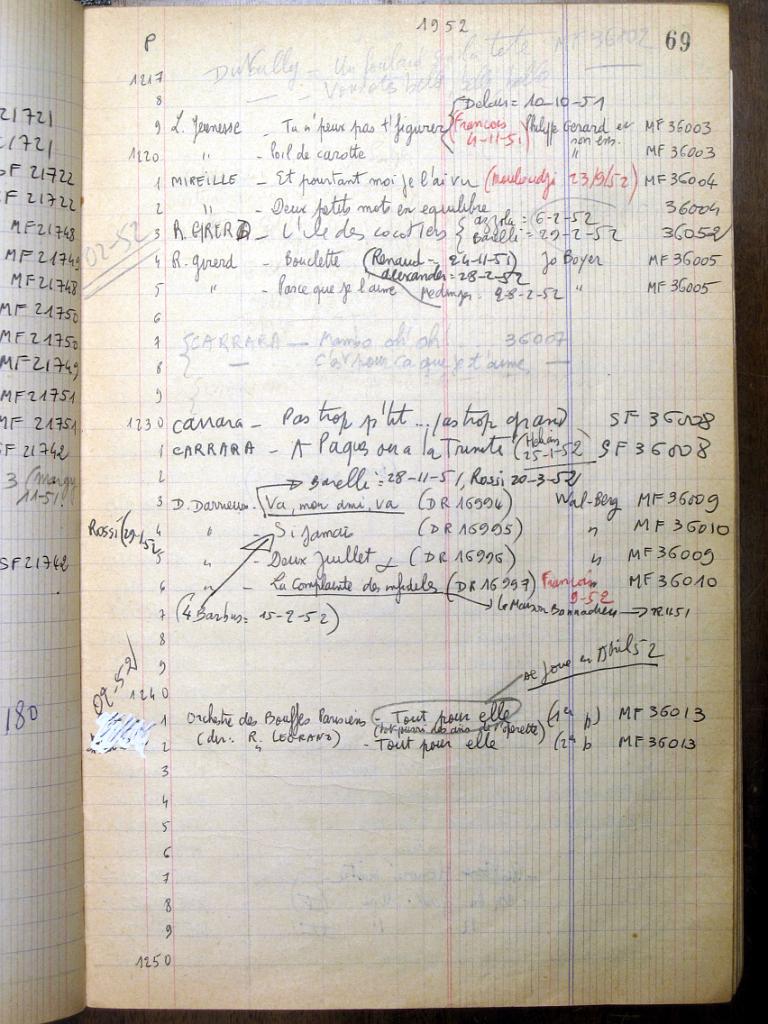 1952
P
69
1217
Dunally - Un foulard sur la tête MF 36002
8
Delair = 10-10-51
9 L. Jeunesse - Tu n'peux pas t'figurer (Francois 4-11-51) Philippe Gerard et son ens. MF 36003
1220 " - Poil de carotte " MF 36003
1 MIREILLE - Et pourtant moi je l'ai vu (Mouloudji 23/9/52) MF 36004
2 " - Deux petits mots en equilibre 36004
azzola = 6-2-52
3 R. GIRERD - L'ile des cocotiers { Barelli = 29-2-52 36052
02-52
4 R. Girerd - Bouclette (Renaud = 24-11-51) Jo Boyer MF 36005
alexander = 28-2-52
5 " - Parce que je l'aime Medinger = 28-2-52 " MF 36005
6
7 CARRARA - Mambo oh! oh! .. 36007
8 - C'est pour ça que je t'aime -
9
1230 Carrara - Pas trop p'tit ... pas trop grand SF 36008
1 CARRARA - A Paques ou a la Trinite (Helian 25-1-52) SF 36008
2 Barelli = 28-11-51, Rossi 20-3-52
3 D. Darrieux - Va, mon ami, va (DR 16994) Wal-Berg MF 36009
Rossi (29-1-52
4 " Si jamais (DR 16995) " MF 36010
5 " - Deux Juillet (DR 16996) " MF 36009
6 " - La Complainte des infideles (DR 16997) Francois 9-52 MF 36010
7 (4 Barbus = 15-2-52) la Maison Bonnadieu
8
9
09-52
1240
se joue en Avril 52
1 Orchestre des Bouffes Parisiens - Tout pour elle (1ère p) MF 36013
(pot pourri des airs de l'operette)
2 (dir: R. LEGRAND) - Tout pour elle (2è p MF 36013
3
4
5
6
7
8
9
1250
21721
21721
SF 21722
F 21722
MF 21748
MF 21749
MF 21748
MF 21750
MF 21750
MF 21749
MF 21751
MF 21751
SF 21742
3 (Margy
11-51
SF 21742
180